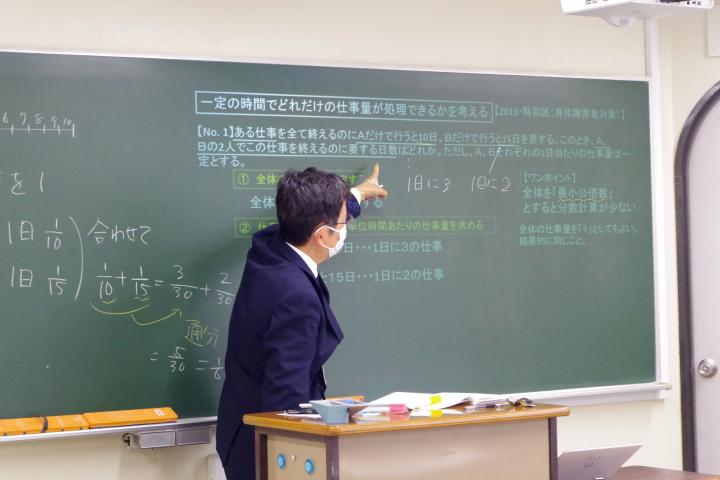 6, 7, 8, 9, 10,
を1
1日 1/10
1日 1/15
合わせて
1/10 + 1/15 = 3/30 + 2/30
通分
= 5/30 = 1/6
一定の時間でどれだけの仕事量が処理できるかを考える【2013・特別区(身体障害者対象)】
【No. 1】ある仕事を全て終えるのにAだけで行うと10日、Bだけで行うと15日を要する。このとき、A、
Bの2人でこの仕事を終えるのに要する日数はどれか。ただし、A、Bそれぞれの1日当たりの仕事量は一
定とする。
① 全体
全体
る
② 仕
単位時間あたりの仕事量を求める
日・・・1日に3の仕事
と15日・・・1日に2の仕事
1日に3 1日に2
【ワンポイント】
全体を「最小公倍数」
とすると分数計算が少ない
全体の仕事量を「1」としてもよい。
結果的に同じこと。